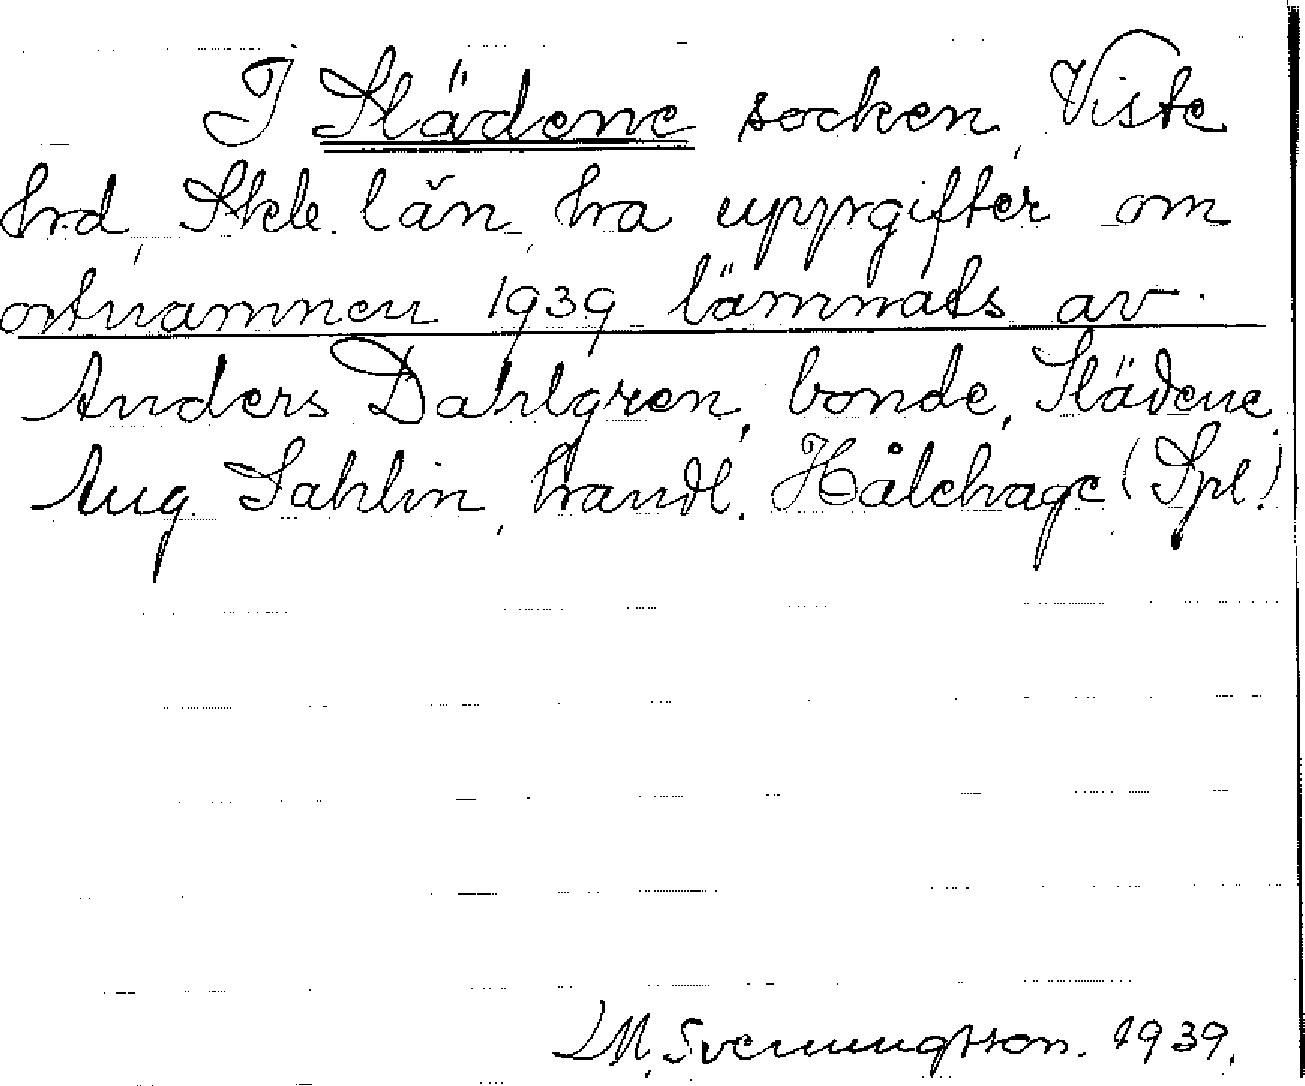 I Slädene socken, Viste
hrd, Skb. län, ha uppgifter om
ortnamnen 1939 lämnats av
Anders Dahlgren, bonde, Slädene.
Aug. Sahlin, handl. Hålehage (Spl.)
M. Svenungsson. 1939.